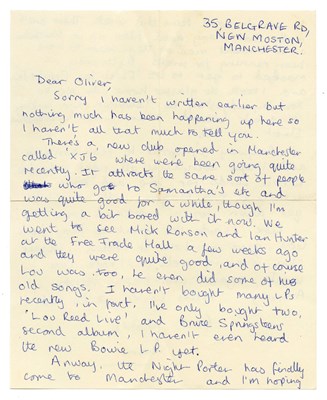 35, BELGRAVE RD,
NEW MOSTON,
MANCHESTER.
Dear Oliver,
Sorry I haven't written earlier but
nothing much has been happening up here so
I haven't all that much to tell you.
There's a new club opened in Manchester
called XJ6 where were been going quite
recently. It attracts the same sort of people
who go to Samantha's etc and
was quite good for a while, though I'm
getting a bit bored with it now. We
went to see Mick Ronson and Ian Hunter
at the Free Trade Hall a few weeks ago
and they were quite good, and of course
Lou was too, he even did some of his
old songs. I haven't bought many LPs
recently, in fact. I've only bought two,
'Lou Reed Live' and Bruce Springsteens
second album, I haven't even heard
the new Bowie L.P. yet.
Anyway, the Night Porter has finally
come to Manchester and I'm hoping